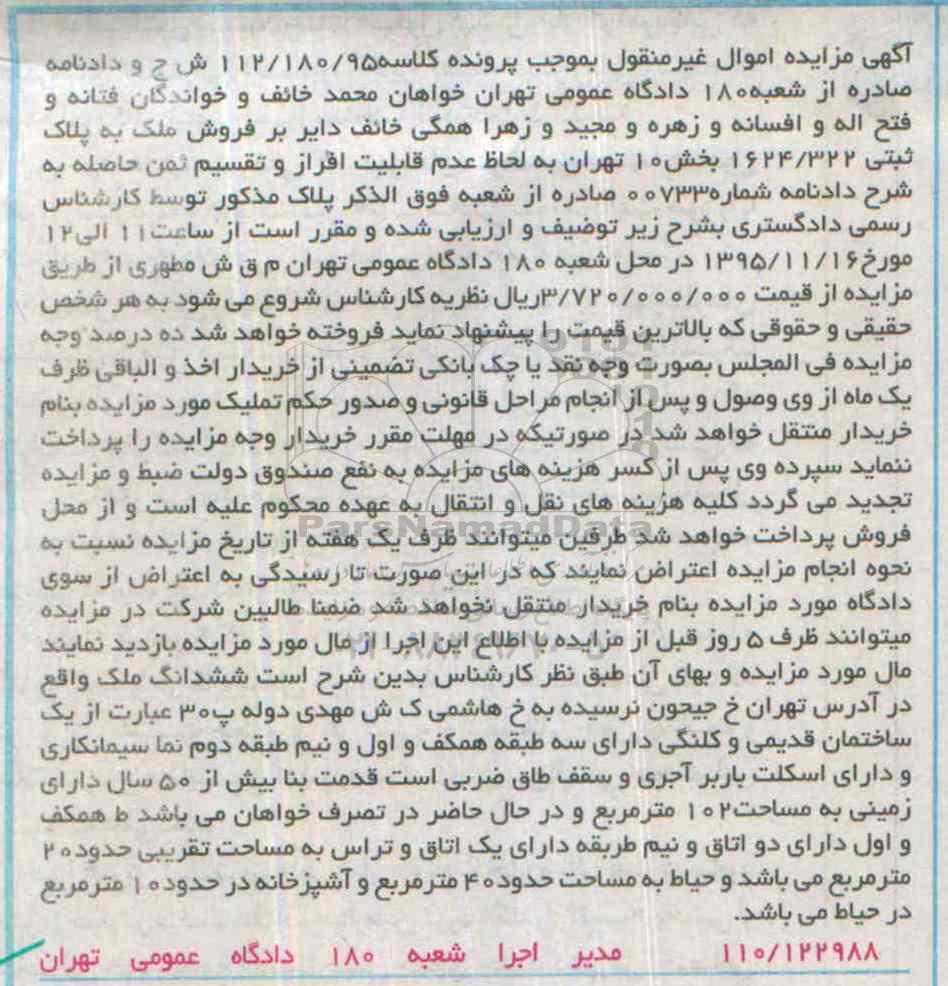 آگهی مزایده اموال غیرمنقول بموجب پرونده کلاسه۱۱۲/۱۸۰/۹۵ ش ج و دادنامه
صادره از شعبه۱۸۰ دادگاه عمومی تهران خواهان محمد خائف و خواندگان فتانه و
فتح اله و افسانه و زهره و مجید و زهرا همگی خائف دایر بر فروش ملک به پلاک
ثبتی ۱۶۲۴/۳۲۲ بخش۱۰ تهران به لحاظ عدم قابلیت افراز و تقسیم ثمن حاصله به
شرح دادنامه شماره۰۰۷۳۳ صادره از شعبه فوق الذکر پلاک مذکور توسط کارشناس
رسمی دادگستری بشرح زیر توضیف و ارزیابی شده و مقرر است از ساعت۱۱ الی۱۲
مورخ۱۳۹۵/۱۱/۱۶ در محل شعبه ۱۸۰ دادگاه عمومی تهران م ق ش مطهری از طریق
مزایده از قیمت ۳/۷۲۰/۰۰۰/۰۰۰ریال نظریه کارشناس شروع می شود به هر شخص
حقیقی و حقوقی که بالاترین قیمت را پیشنهاد نماید فروخته خواهد شد ده درصد وجه
مزایده فی المجلس بصورت وجه نقد یا چک بانکی تضمینی از خریدار اخذ و الباقی ظرف
یک ماه از وی وصول و پس از انجام مراحل قانونی و صدور حکم تملیک مورد مزایده بنام
خریدار منتقل خواهد شد در صورتیکه در مهلت مقرر خریدار وجه مزایده را پرداخت
ننماید سپرده وی پس از کسر هزینه های مزایده به نفع صندوق دولت ضبط و مزایده
تجدید می گردد کلیه هزینه های نقل و انتقال به عهده محکوم علیه است و از محل
فروش پرداخت خواهد شد طرفین میتوانند ظرف یک هفته از تاریخ مزایده نسبت به
نحوه انجام مزایده اعتراض نمایند که در این صورت تا رسیدگی به اعتراض از سوی
دادگاه مورد مزایده بنام خریدار منتقل نخواهد شد ضمنا طالبین شرکت در مزایده
میتوانند ظرف ۵ روز قبل از مزایده با اطلاع این اجرا از مال مورد مزایده بازدید نمایند
مال مورد مزایده و بهای آن طبق نظر کارشناس بدین شرح است ششدانگ ملک واقع
در آدرس تهران خ جیحون نرسیده به خ هاشمی ک ش مهدی دوله پ۳۰ عبارت از یک
ساختمان قدیمی و کلنگی دارای سه طبقه همکف و اول و نیم طبقه دوم نما سیمانکاری
و دارای اسکلت باربر آجری و سقف طاق ضربی است قدمت بنا بیش از ۵۰ سال دارای
زمینی به مساحت۱۰۲ مترمربع و در حال حاضر در تصرف خواهان می باشد ط همکف
و اول دارای دو اتاق و نیم طربقه دارای یک اتاق و تراس به مساحت تقریبی حدود۲۰
مترمربع می باشد و حیاط به مساحت حدود۴۰ مترمربع و آشپزخانه در حدود۱۰ مترمربع
در حیاط می باشد.
۱۱۰/۱۲۲۹۸۸ مدیر اجرا شعبه ۱۸۰ دادگاه عمومی تهران
ParsNamadData